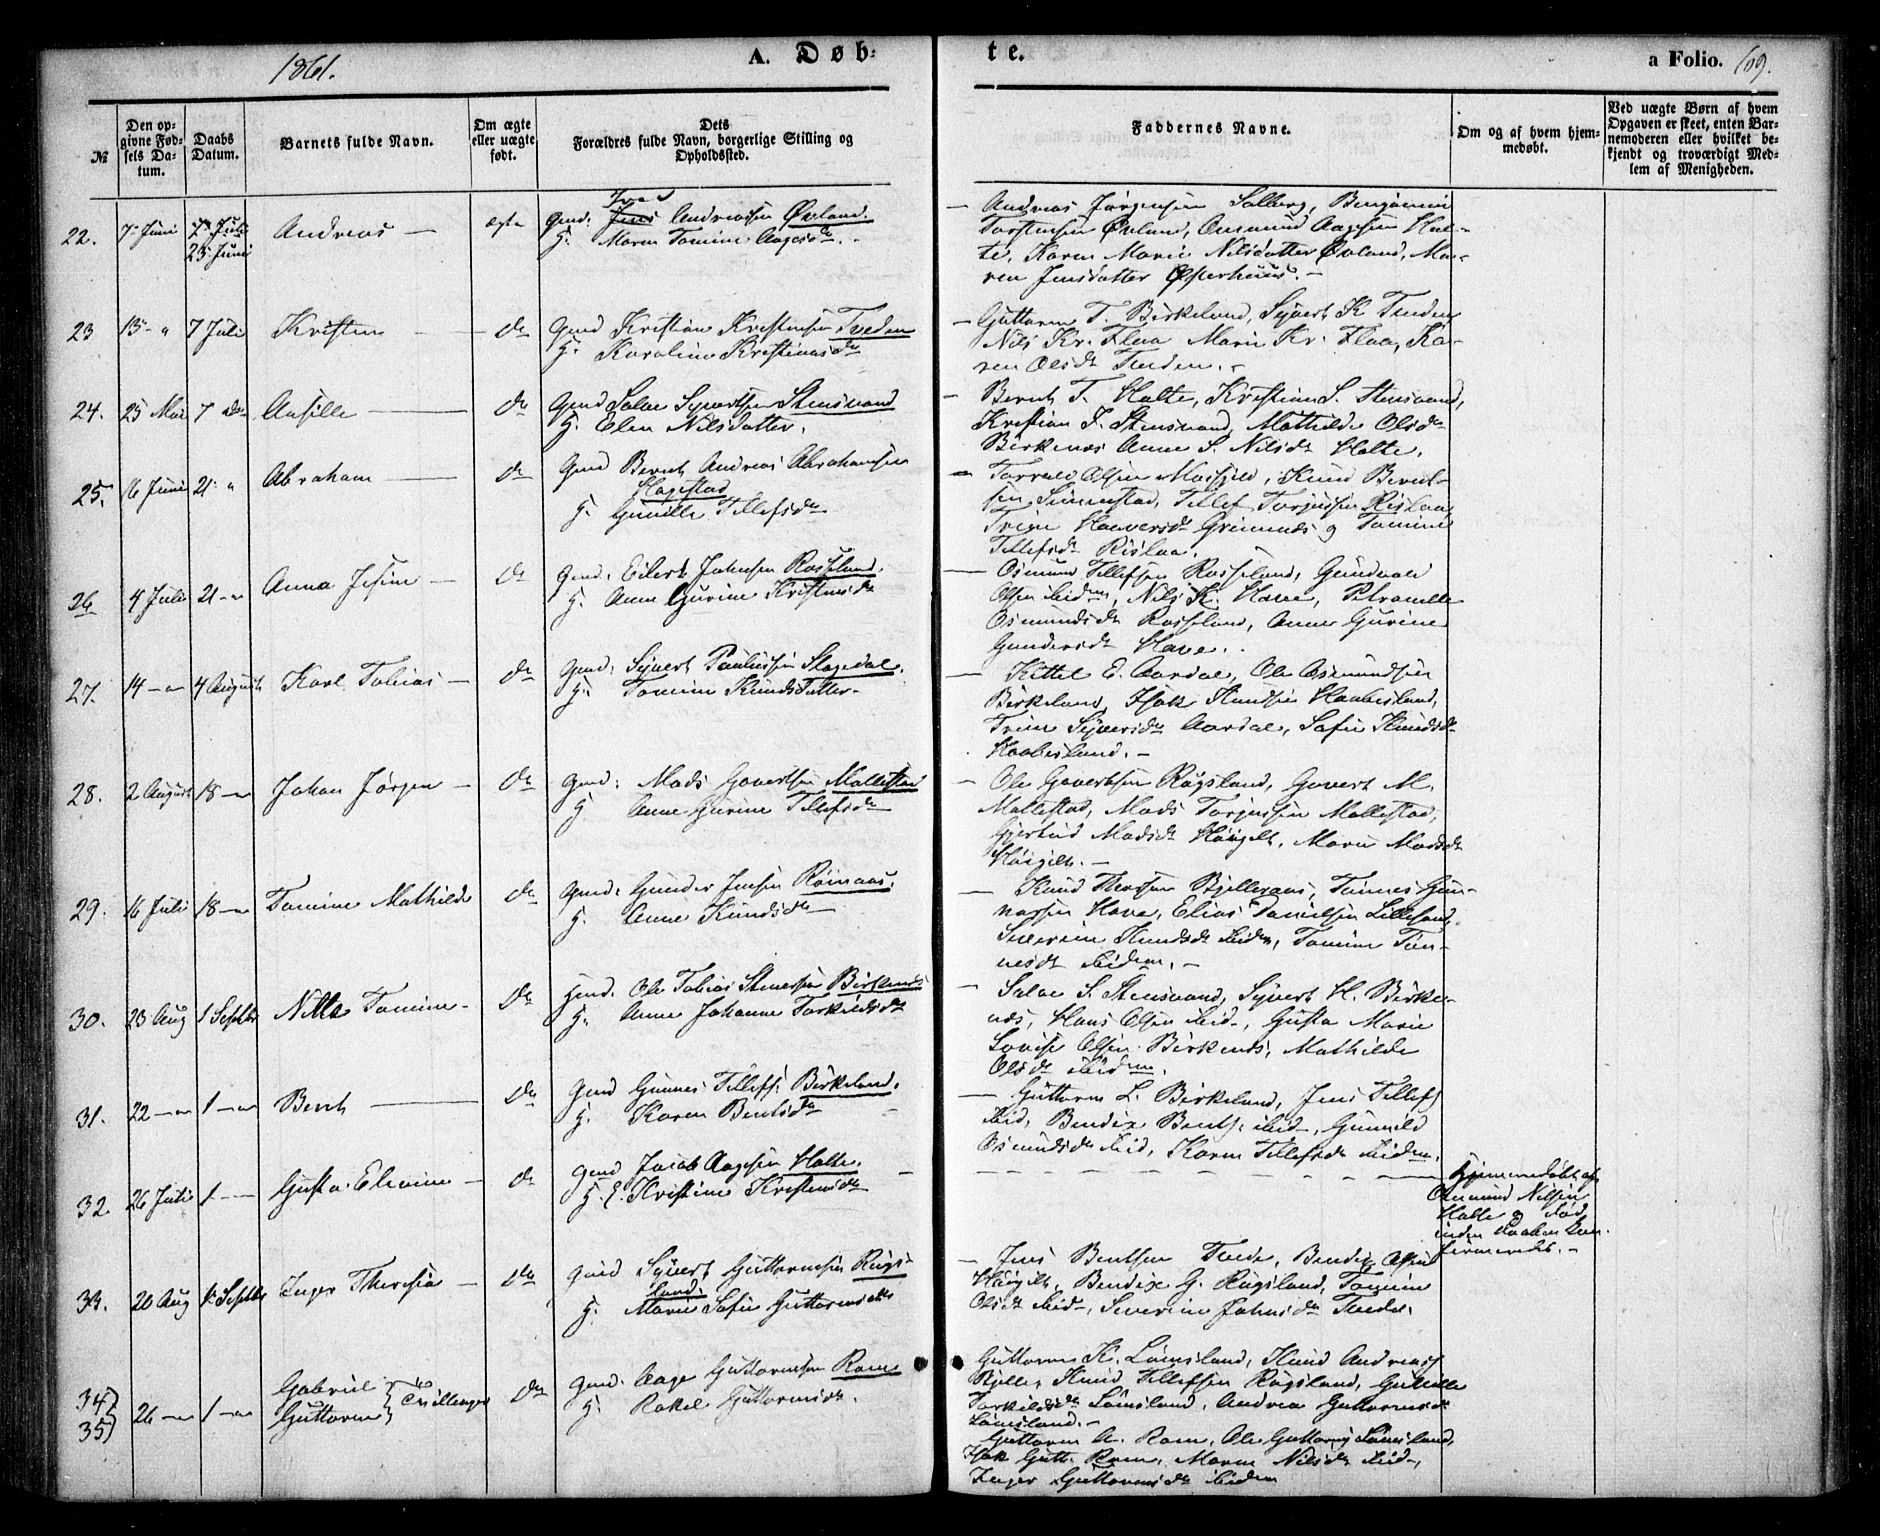 1861.
A. Døb-
te.
a Folio. 109.
№
Den op-
givne Fød-
sels Da-
tum.
Daabs
Datum.
Barnets fulde Navn.
Om ægte
eller uægte
født.
Dets
Forældres fulde Navn, borgerlige Stilling og
Opholdssted.
Faddernes Navne.
Om og af hvem hjem-
medøbt.
Ved uægte Børn af hvem
Opgaven er skeet, enten Bar-
nemoderen eller hvilket be-
kjendt og troværdigt Med-
lem af Menigheden.
22. 7 Juni 23 Juni Andreas — ægte
Gmd: Jens Andreassen Øvland.
H. Maren Tomine Aagesdr.
Andreas Jørgensen Solberg, Benjamin
Torstensen Øvland, Osmund Aagesen Hal-
te, Karen Marie Nilsdatter Øvland, Ma-
ren Jensdatter Østerhuus. —
23 13 - " 7 Juli Kristen — do
Gmd Kristian Kristensen Tveden
H. Karoline Kristinesdr
Guttorm T. Birkeland, Syvert K. Tveden
Nils Kr. Flaa Marie Kr. Flaa, Ka-
ren Olsdr Tveden. —
24. 25 Mai 7 do Aasille — do
Gmd Salve Syvertsen Stensvand
H. Elen Nilsdatter.
Bernt T. Halte, Kristine S. Stensvand,
Kristian F. Stensvand, Mathilde Olsdr
Birkenæs Anne S. Nilsdr Halte.
25. 16 Juni 21 " Abraham — do
Gmd Bernt Andreas Abrahamsen
Hagestad
H. Gunille Tellefsdr
Torvald Olsen Mosfjeld, Knud Bernt-
sen Simenstad, Tellef Torjussen Rislaa,
Trine Haaversdr Grimnæs og Tomine
Tellefsdr Rislaa.
26 4 Juli 21 - " Anna Jesine — do
Gmd: Eilert Johnsen Rosseland.
H. Anne Gurine Kristensdr
Osmund Tellefsen Rosseland, Gundvald
Olsen ibidem, Nils K. Have, Petronelle
Osmundsdr Rosseland, Anne Gurine
Gundersdr Have.
27. 14 - " 4 August Karl Tobias — do
Gmd: Syvert Paulussen Slagedal.
H. Tomine Knudsdatter
Kittel E. Aardal, Ole Osmundsen
Birkeland, Isak Knudsen Haabesland,
Trine Syversdr Aardal, Sofie Knudsdr
Haabesland. —
28. 2 August 18 - " Johan Jørgen — do
Gmd: Mads Govertsen Mollestad
H Anne Gurine Tellefsdr
Ole Govertsen Rugsland, Govert M.
Mollestad, Mads Torjussen Mollestad,
Gjertrud Madsdr Høigilt, Maren Madsdr
Høigilt. —
29. 16 Juli 18 - " Tomine Mathilde do
Gmd: Gunder Jensen Røinaas.
H. Anne Knudsdr
Knud Thorsen Kjellevaas, Tønnes Gun-
narsen Have, Elias Danielsen Lillesand,
Severine Knudsdr ibidem, Tomine Tøn-
nesdr ibidem. —
30. 23 Aug 1 Septbr Nilla Tomine — do
Gmd. Ole Tobias Stenersen Birkenæs
H. Anne Johanne Torkildsdr
Salve S. Stensvand, Syvert H. Birke-
næs, Hans Olsen ibid, Gusta Marie
Lovise Olsen Birkenæs, Mathilde
Olsdr ibidem.
31. 22 - " 1 - " Bent — do
Gmd Gunnes Tellefs. Birkeland.
H. Karen Bentsdr
Guttorm L. Birkeland, Jens Tellefs
ibid, Bendix Bents. ibid, Gunnild
Osmundsdr ibid, Karen Tellefsdr ibidem.
32. 26 Juli 1 - - Gusta Elevine — do
Gmd Jacob Aagesen Halte.
H. E. Kristine Kristensdr
Hjemmedøbt af
Osmund Nilsen
Halte og død
inden Daaben kon-
firmeredes. —
33. 20 Aug 1 Septbr Inger Theresia — do
Gmd Syvert Guttormsen Rugs-
land.
H. Maren Sofie Guttormsdr
Jens Bentsen Tvede, Bendix Olsen
Høigilt, Bendix G. Rugsland, Tomine
Olsdr ibid, Severine Johnsdr Tvede.
34) 35) 26 - " 1 - " Gabriel Guttorm } Tvillinger do
Gmd: Aage Guttormsen Rom
H. Rakel Guttormsdr.
Guttorm K. Lømsland, Knud Andreass
Kjelle, Knud Tellefsen Rugsland, Gunille
Torkildsdr Lømsland, Andrea Guttormsdr
Lømsland. —
Guttorm A. Rom, Ole Guttorms Lømsland,
Isak Gutt. Rom, Maren Nilsdr ibid,
Inger Guttormsdr ibidem